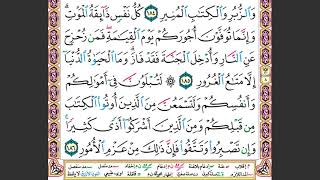 وَالزُّبُرِ وَالْكِتَابِ الْمُنِيرِ ١٨٤ كُلُّ نَفْسٍ ذَائِقَةُ الْمَوْتِ
وَإِنَّمَا تُوَفَّوْنَ أُجُورَكُمْ يَوْمَ الْقِيَامَةِ فَمَن زُحْزِحَ
عَنِ النَّارِ وَأُدْخِلَ الْجَنَّةَ فَقَدْ فَازَ وَمَا الْحَيَاةُ الدُّنْيَا
إِلَّا مَتَاعُ الْغُرُورِ ١٨٥ لَتُبْلَوُنَّ فِي أَمْوَالِكُمْ
وَأَنفُسِكُمْ وَلَتَسْمَعُنَّ مِنَ الَّذِينَ أُوتُوا الْكِتَابَ
مِن قَبْلِكُمْ وَمِنَ الَّذِينَ أَشْرَكُوا أَذًى كَثِيرًا
وَإِن تَصْبِرُوا وَتَتَّقُوا فَإِنَّ ذَٰلِكَ مِنْ عَزْمِ الْأُمُورِ ١٨٦